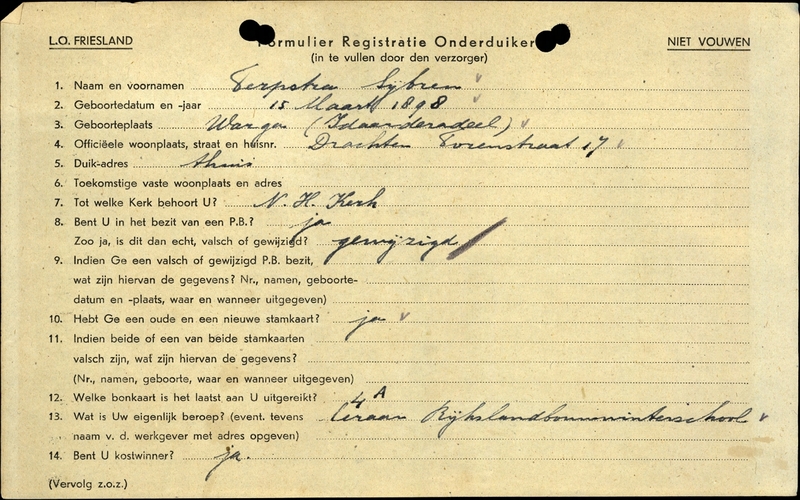 L.O. FRIESLAND
Formulier Registratie Onderduiker
NIET VOUWEN
(in te vullen door den verzorger)
1. Naam en voornamen Terpstra Sijbren
2. Geboortedatum en -jaar 15 Maart 1898
3. Geboorteplaats Warga (Idaarderadeel)
4. Officiëele woonplaats, straat en huisnr. Drachten Torenstraat 17
5. Duik-adres thuis
6. Toekomstige vaste woonplaats en adres
7. Tot welke Kerk behoort U? N. H. Kerk
8. Bent U in het bezit van een P.B.? ja
Zoo ja, is dit dan echt, valsch of gewijzigd? gewijzigd
9. Indien Ge een valsch of gewijzigd P.B. bezit,
wat zijn hiervan de gegevens? Nr., namen, geboorte-
datum en -plaats, waar en wanneer uitgegeven)
10. Hebt Ge een oude en een nieuwe stamkaart? ja
11. Indien beide of een van beide stamkaarten
valsch zijn, waf zijn hiervan de gegevens?
(Nr., namen, geboorte, waar en wanneer uitgegeven)
12. Welke bonkaart is het laatst aan U uitgereikt? 4 A
13. Wat is Uw eigenlijk beroep? (event. tevens leraar Rijkslandbouwwinterschool
naam v. d. werkgever met adres opgeven)
14. Bent U kostwinner? ja.
(Vervolg z.o.z.)